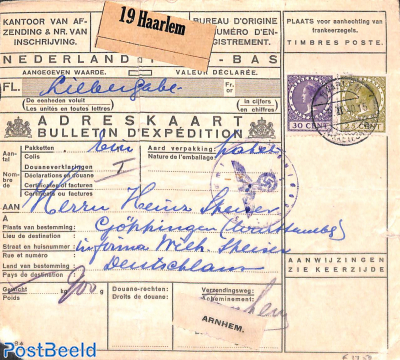 KANTOOR VAN AF-
ZENDING & NR. VAN
INSCHRIJVING.
19 Haarlem
BUREAU D'ORIGINE
NUMÉRO D'EN-
REGISTREMENT.
PLAATS voor aanhechting van
frankeerzegels.
TIMBRES POSTE.
NEDERLAND -BAS
AANGEGEVEN WAARDE.
VALEUR DÉCLARÉE.
FL.
Liebergabe
Fr.
or
De eenheden voluit
Les unités en toutes lettres
in cijfers
en chiffres
30 CENT
CENT
ADRESKAART
BULLETIN D'EXPÉDITION
Aantal
Nombre de
Pakketten
Colis
een
Aard verpakking
Nature de l'emballage
pakket
Douaneverklaringen
Déclarations en douane
I
Certificaten of facturen
Certificats ou factures
AAN
A
Herrn Heinz Speiser
Plaats van bestemming:
Lieu de destination:
Göppingen (Württemberg)
Straat en huisnummer:
Rue et numéro:
in firma Wilh. Speiser
Land van bestemming:
Pays de destination:
Deutschland
AANWIJZINGEN
ZIE KEERZIJDE
Gewicht
Poids
kg
900
g
Douane-rechten:
Droits de douane:
Verzendingsweg:
Acheminement:
ARNHEM.
PostBeeld